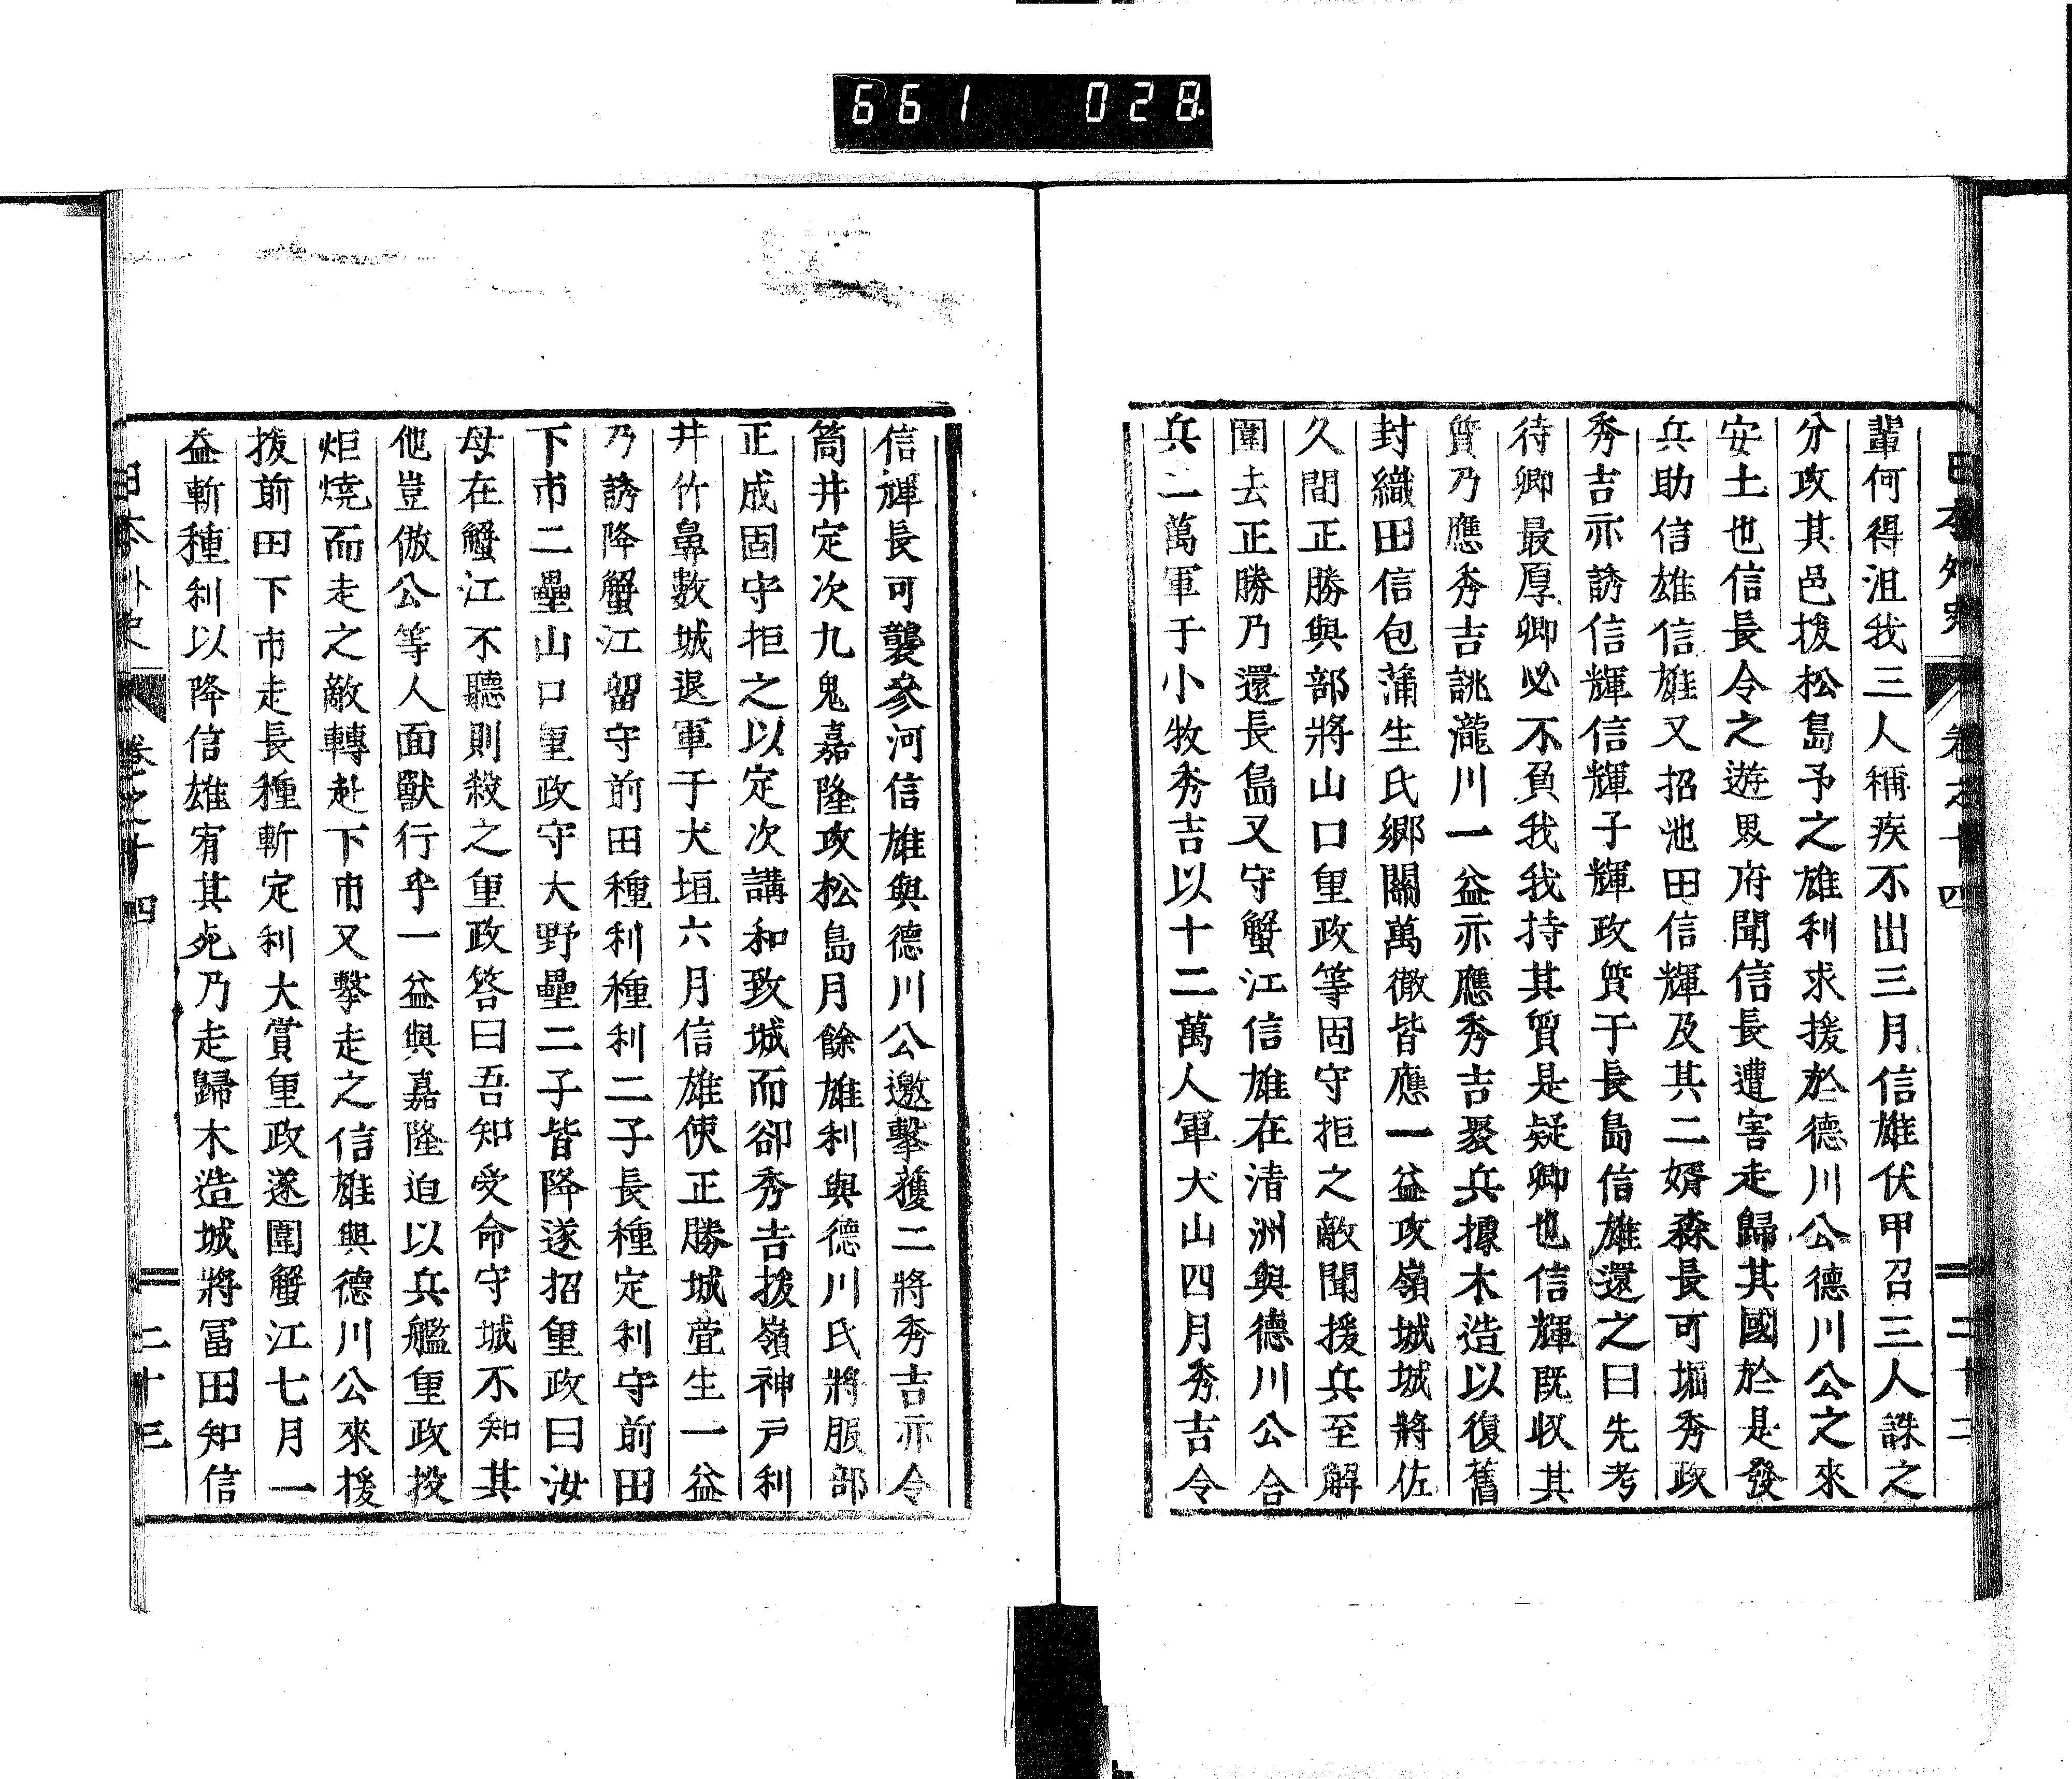 661 028
日本外史 卷之十四 二十二
輩何得沮我三人稱疾不出三月信雄伏甲召三人誅之
分攻其邑拔松島予之雄利求援於德川公德川公之來
安土也信長令之遊界府聞信長遭害走歸其國於是發
兵助信雄信雄又招池田信輝及其二婿森長可堀秀政
秀吉亦誘信輝信輝子輝政質于長島信雄還之曰先考
待卿最厚卿必不負我我持其質是疑卿也信輝既收其
質乃應秀吉誂瀧川一益亦應秀吉聚兵據木造以復舊
封織田信包蒲生氏鄉關萬徹皆應一益攻嶺城城將佐
久間正勝與部將山口重政等固守拒之敵聞援兵至解
圍去正勝乃還長島又守蟹江信雄在清洲與德川公合
兵二萬軍于小牧秀吉以十二萬人軍犬山四月秀吉令
信輝長可襲參河信雄與德川公邀擊獲二將秀吉亦令
筒井定次九鬼嘉隆攻松島月餘雄利與德川氏將服部
正成固守拒之以定次講和致城而卻秀吉拔嶺神戶利
井竹鼻數城退軍于大垣六月信雄使正勝城萱生一益
乃誘降蟹江留守前田種利種利二子長種定利守前田
下市二壘山口重政守大野壘二子皆降遂招重政曰汝
母在蟹江不聽則殺之重政答曰吾知受命守城不知其
他豈倣公等人面獸行乎一益與嘉隆迫以兵艦重政投
炬燒而走之敵轉赴下市又擊走之信雄與德川公來援
拔前田下市走長種斬定利大賞重政遂圍蟹江七月一
益斬種利以降信雄宥其死乃走歸木造城將冨田知信
日本外史 卷之十四 二十三